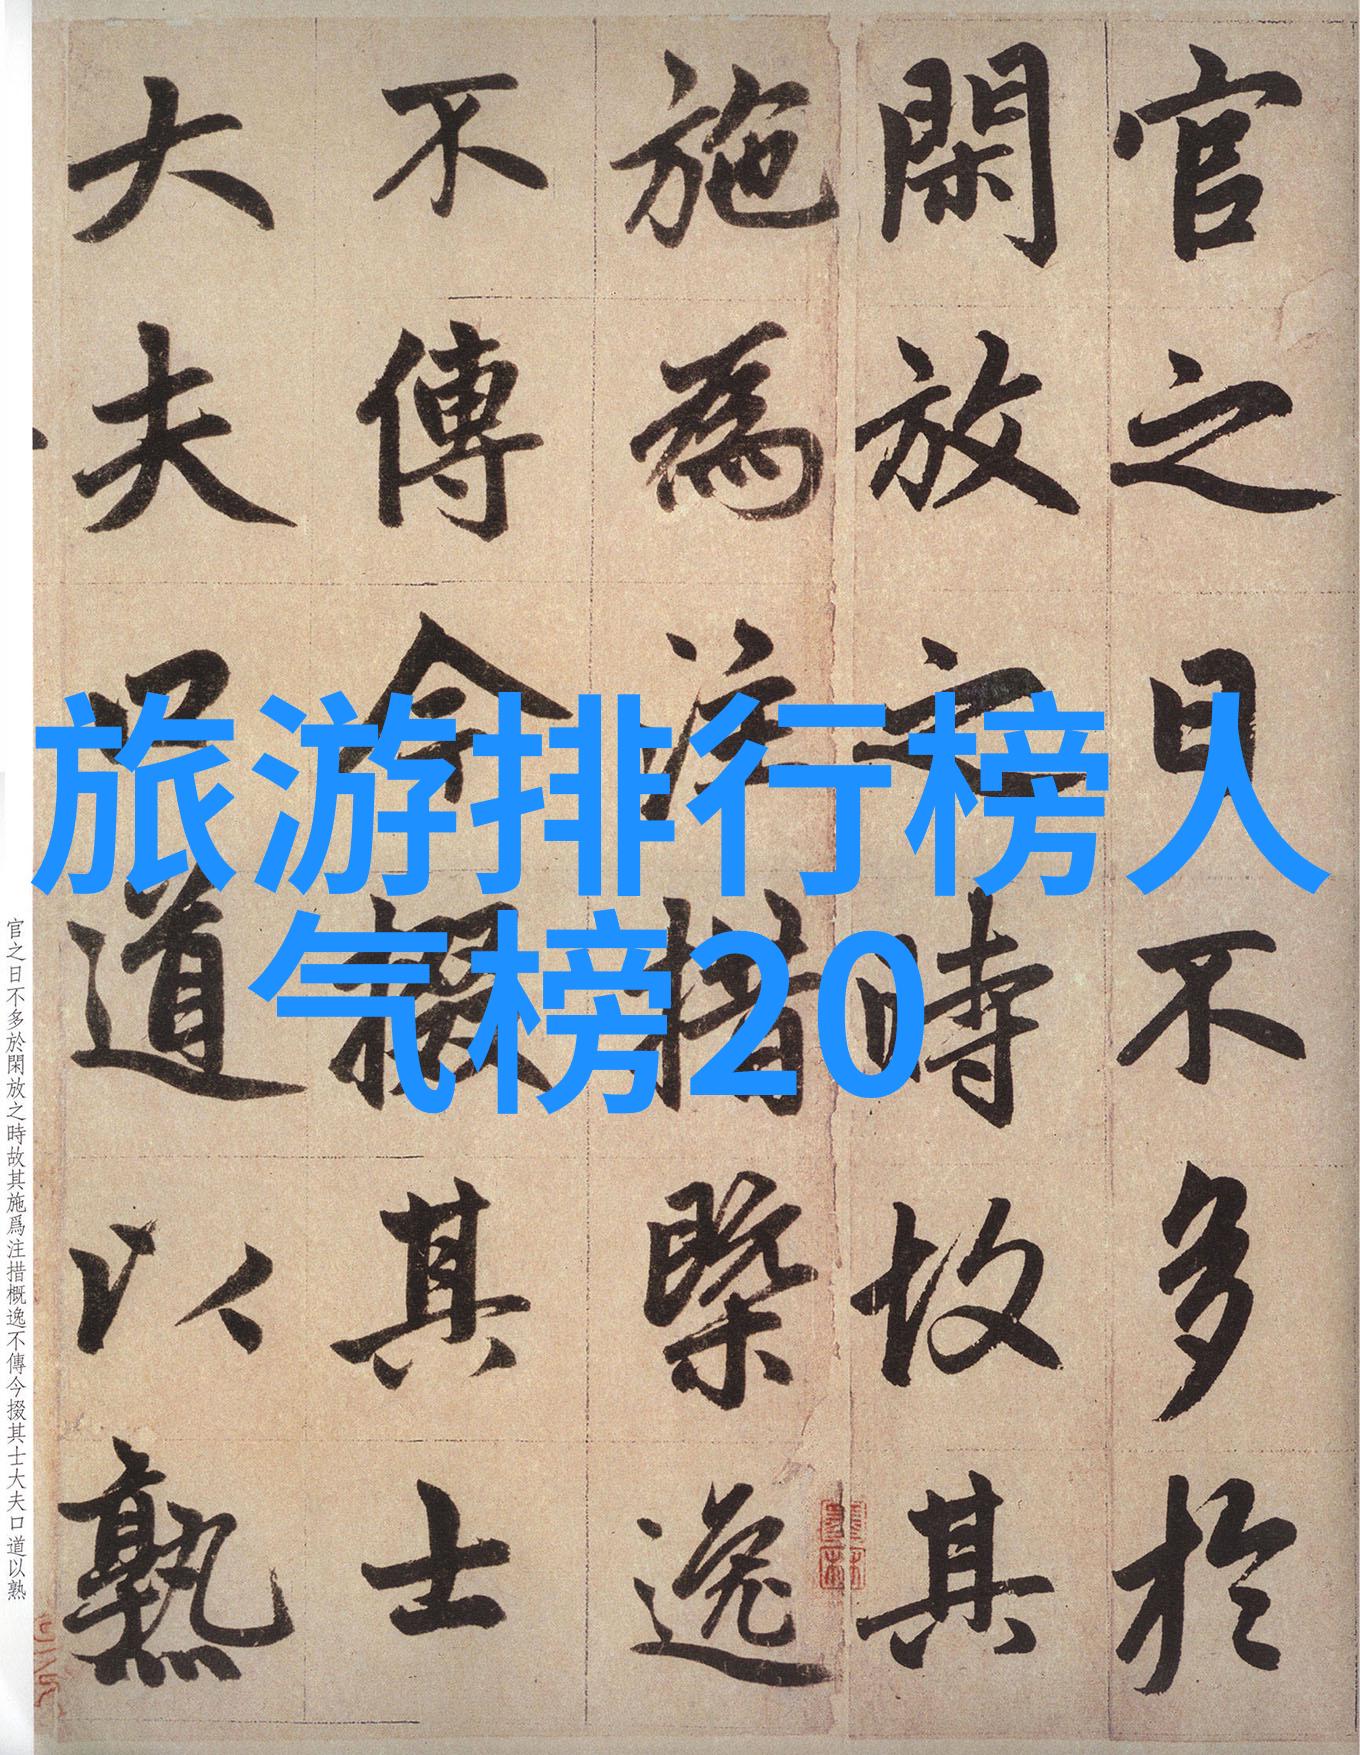 官之日不多於
閑放之時故其
施為注措槩逸
不傳今掇其士
大夫口道以熟
旅游排行榜人
气榜20
官之日不多於閑放之時故其施爲注措概逸不傳今掇其士大夫口道以熟